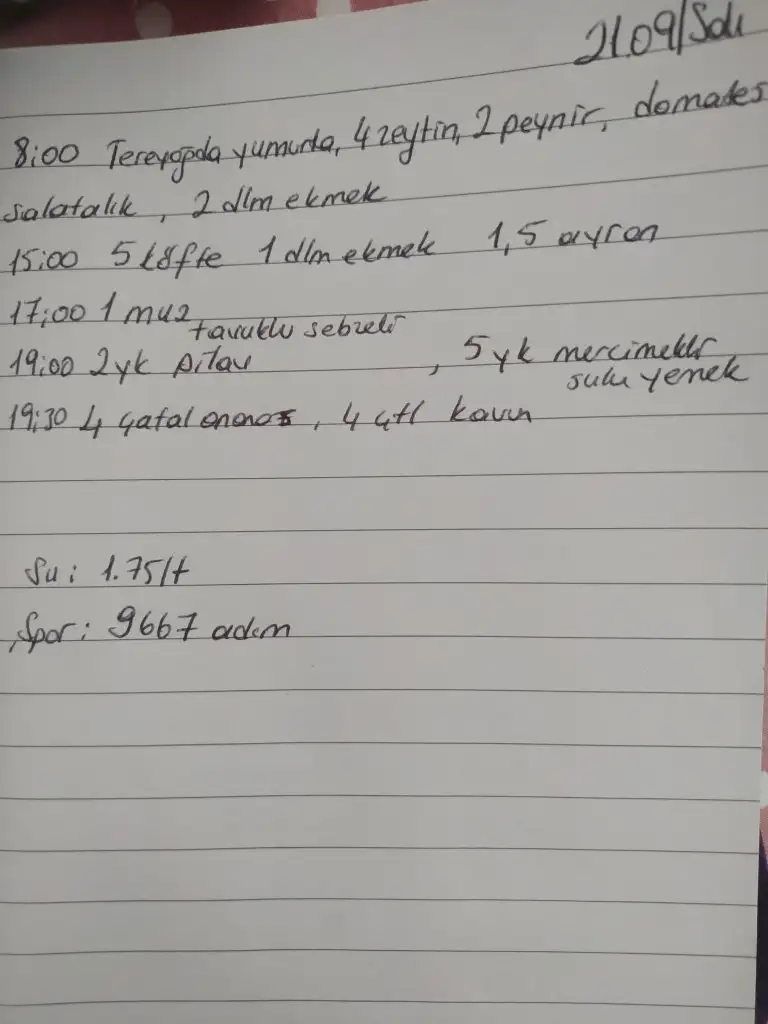 21.09/Salı
8:00 Tereyağda yumurta, 4 zeytin, 2 peynir, domates
salatalık, 2 dlm ekmek
15:00 5 köfte 1 dlm ekmek 1,5 ayran
17:00 1 muz
tavuklu sebzeli
19:00 2yk pilav, 5 yk mercimekli
sulu yemek
19:30 4 çatal ananas, 4 çtl kavun
Su: 1.75lt
Spor: 9667 adım